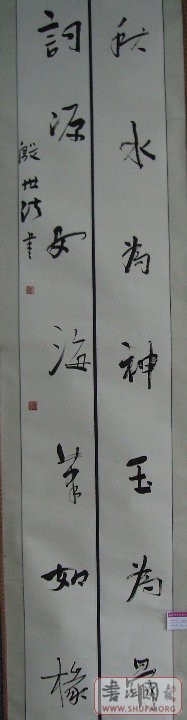 秋水為神玉為骨
詞源如海筆如椽
殷世法書
WWW.SHUFA.ORG